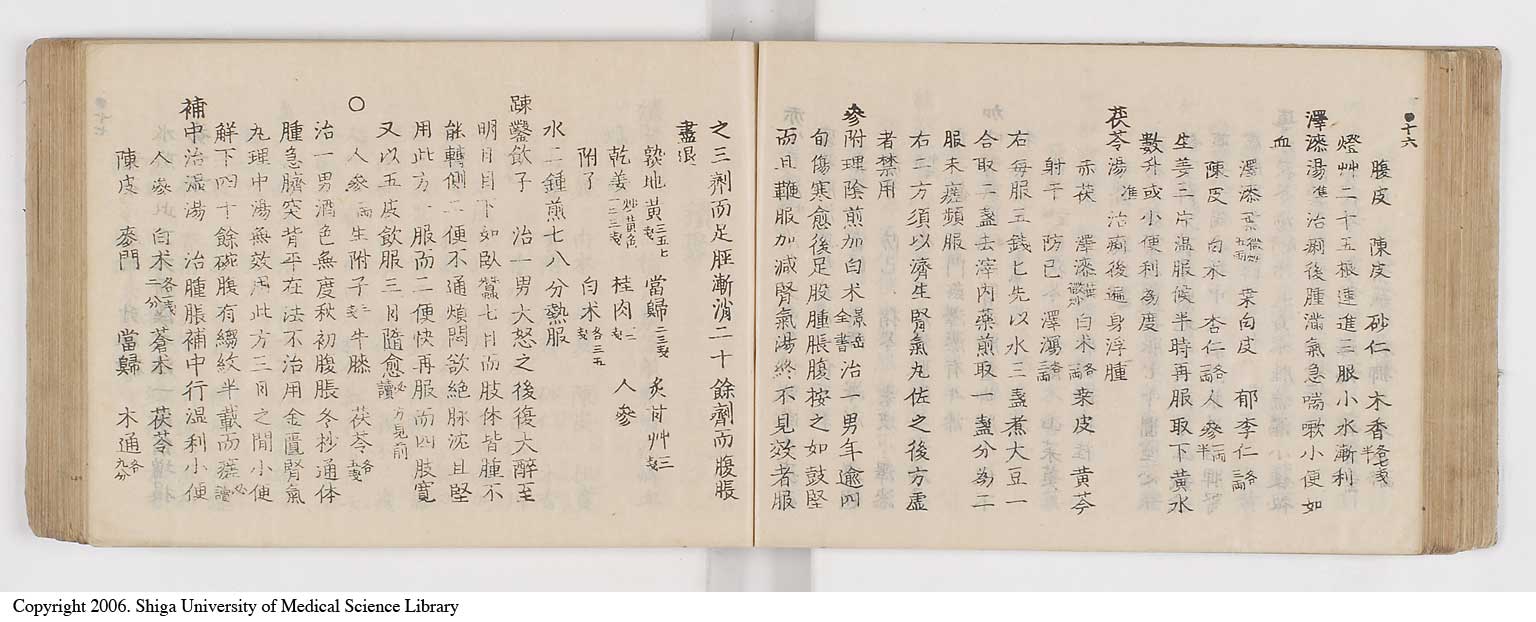 ●十六
腹皮 陳皮 砂仁 木香各七戔半
燈艸二十五根連進三服小水漸利
澤漆湯準治痢後腫滿氣急喘嗽小便如
血
澤漆葉微炒五兩 桒白皮 郁李仁各三兩
陳皮 白朮 杏仁各一兩 人參一兩半
生姜三片温服候半時再服取下黃水
數升或小便利為度
茯苓湯準治痢後遍身浮腫
赤茯 澤漆葉微炒 白朮各一兩 桒皮 黃芩
射干 防已 澤瀉各三兩
右每服五錢匕先以水三盞煮大豆一
合取二盞去滓內藥煎取一盞分為二
服未瘥頻服
右二方須以濟生腎氣丸佐之後方虛
者禁用
參附理陰煎加白朮景岳全書治一男年逾四
旬傷寒愈後足股腫脹腹按之如鼓堅
而且鞕服加減腎氣湯終不見效者服
之三劑而足脛漸消二十餘劑而腹脹
盡退
熟地黃三五七戔 當歸二三戔 炙甘艸三戔
乾姜炒黃色一二三戔 桂肉一二戔 人參
附子 白朮各三五戔
水二鍾煎七八分熱服
踈鑿飲子 治一男大怒之後復大醉至
明日目下如臥蠶七日而肢体皆腫不
能轉側二便不通煩悶欲絶脉沈且堅
用此方一服而二便快再服而四肢寬
又以五皮飲服三日隨愈必讀 方見前
○人參一兩 生附子 牛膝 茯苓各五戔
治一男酒色無度秋初腹脹冬杪通体
腫急臍突背平在法不治用金匱腎氣
丸理中湯無效用此方三日之間小便
解下四十餘碗腹有縐紋半載而痊必讀
補中治濕湯 治腫脹補中行温利小便
人參 白朮各一戔二分 蒼朮 茯苓
陳皮 麥門 當歸 木通各九分